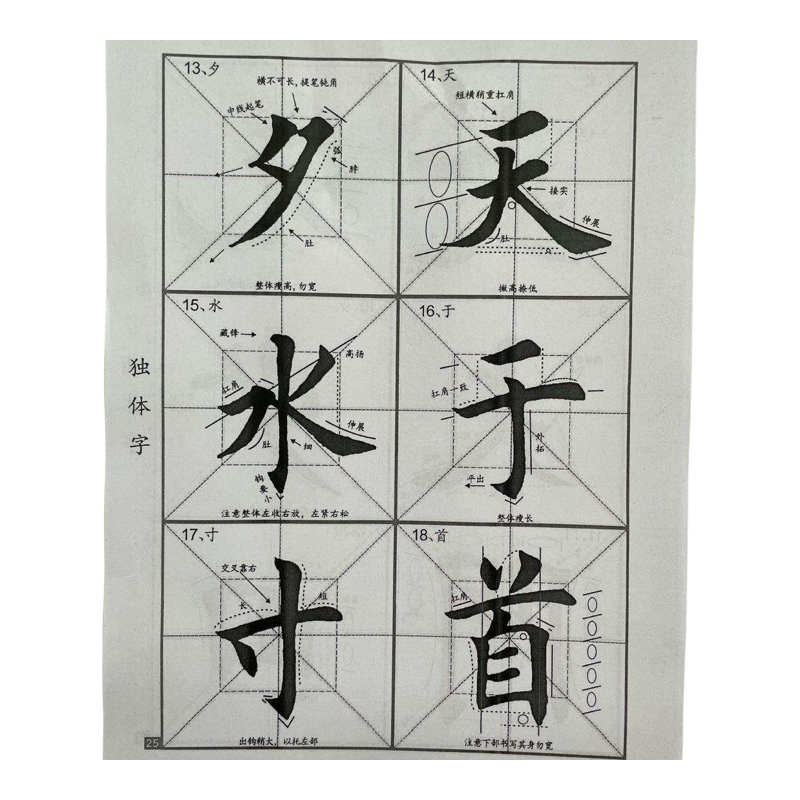 独体字
13、夕
横不可长,提笔钝角
中线起笔
弧
脖
肚
夕
整体瘦高,勿宽
14、天
短横稍重扛肩
接实
伸展
肚
天
撇高捺低
15、水
藏锋
高扬
扛肩
伸展
肚
细
钩要小
水
注意整体左收右放，左紧右松
16、于
扛肩一致
外拓
平出
于
整体瘦长
17、寸
交叉靠右
长
短
寸
出钩稍大，以托左部
18、首
扛肩
首
注意下部书写其身勿宽
25